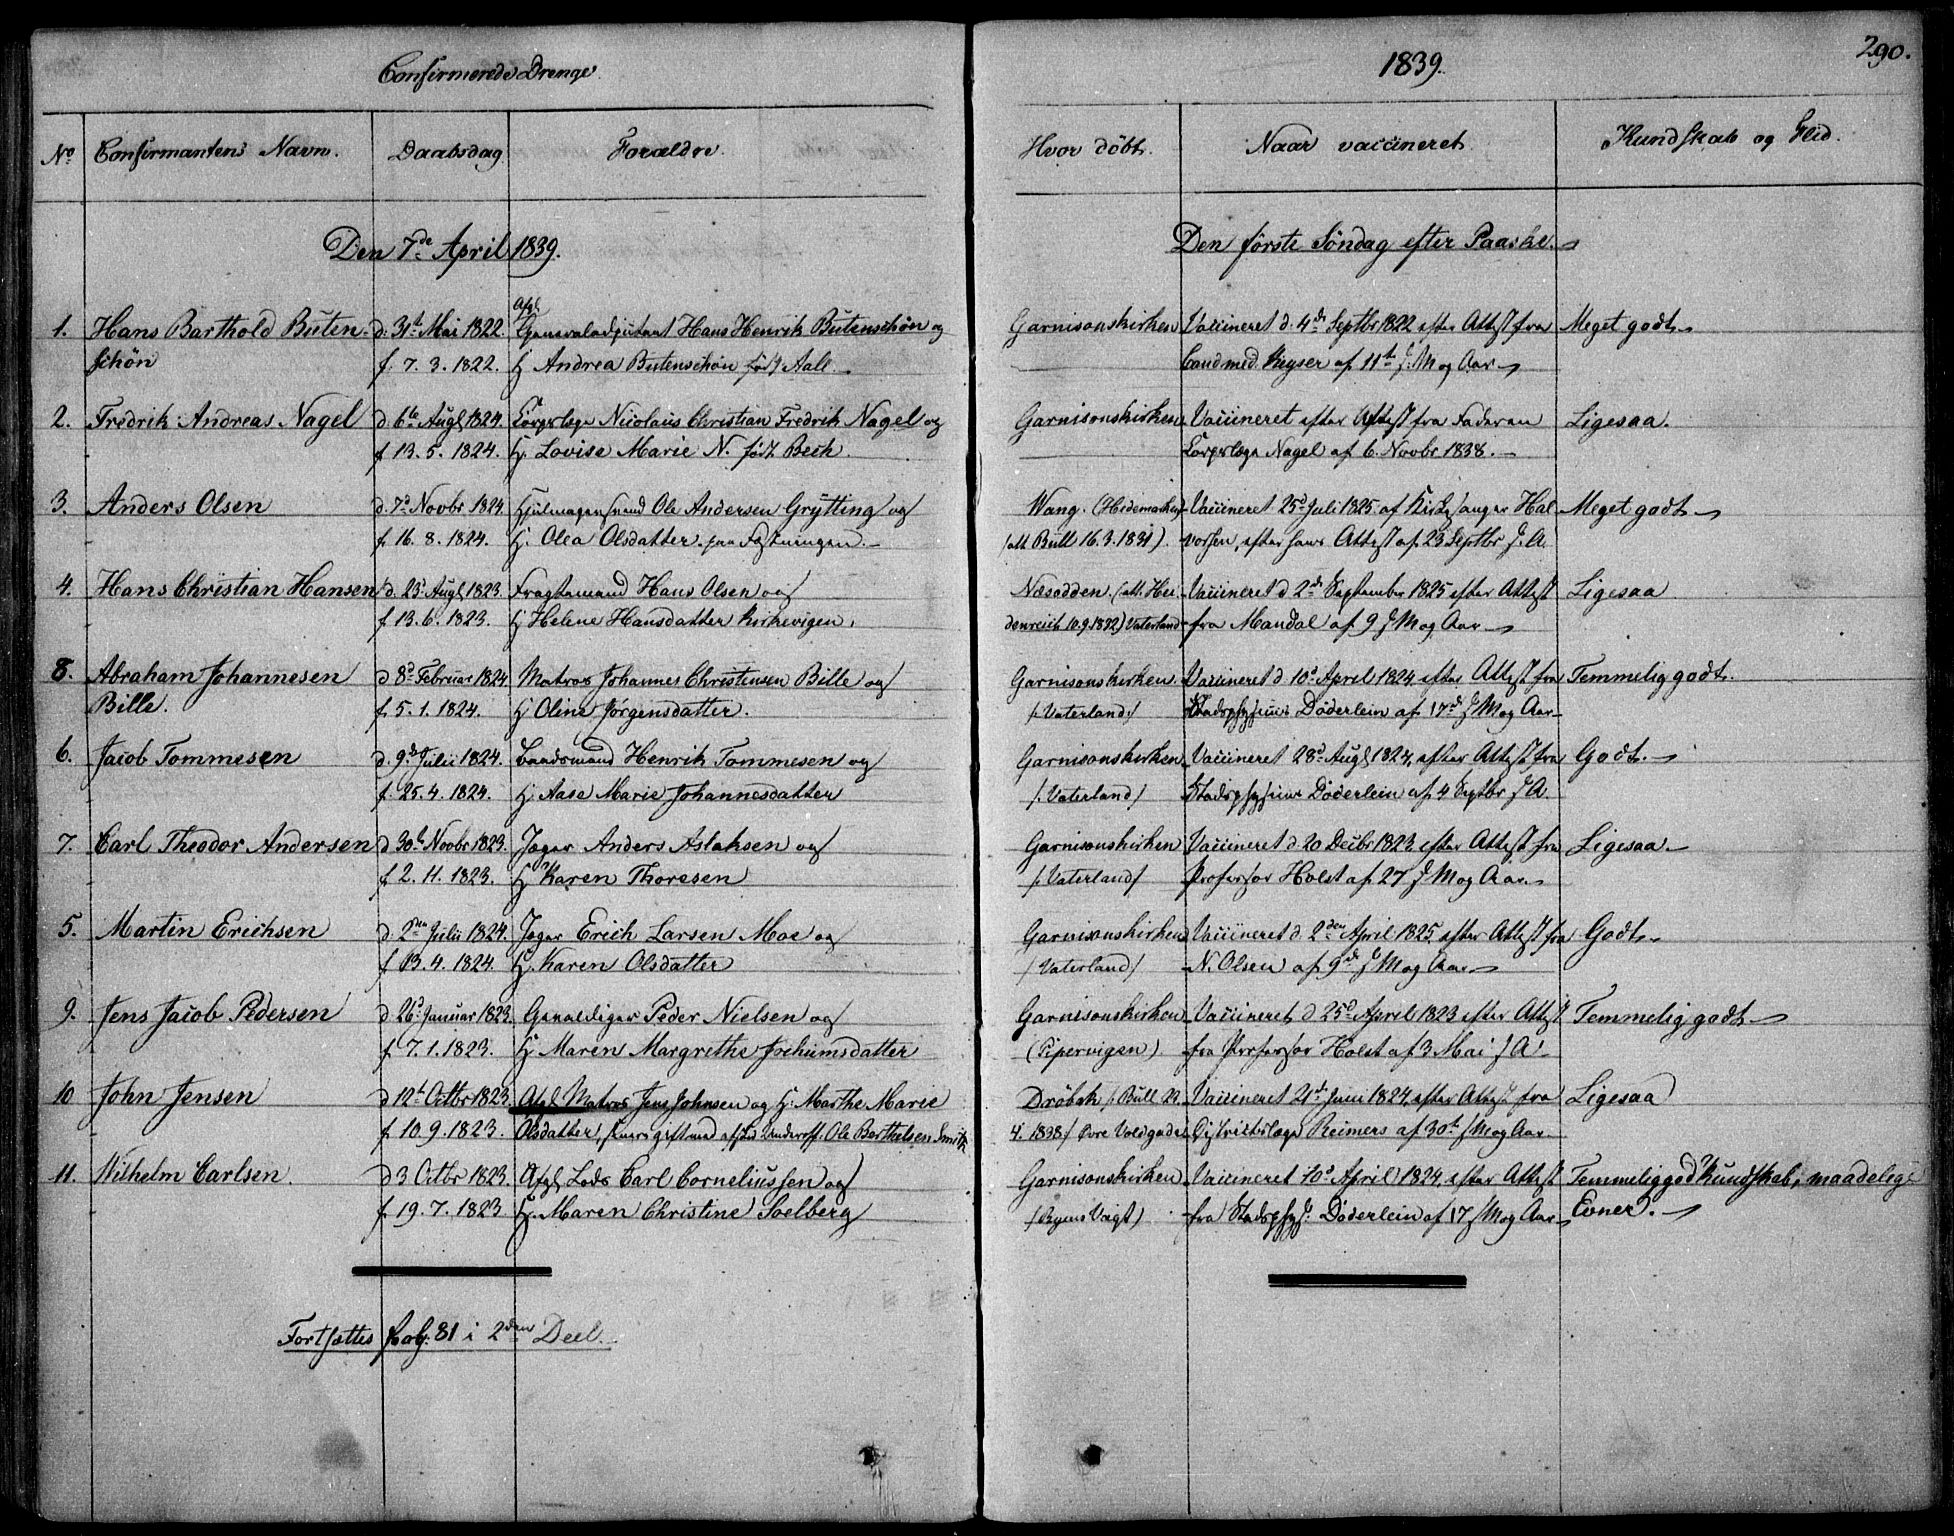 Confirmerede Drenge.
1839.
290.
No Confirmantens Navn. Daabsdag Forældre. Hvor døbt. Naar vaccineret. Kundskab og Flid.
Den 7de April 1839. Den første Søndag efter Paaske.
1. Hans Barthold Buten- d. 31te Mai 1822. Afg. Generaladjutant Hans Henrik Butenschøn og Garnisonskirken Vaccineret d. 4de Septbr 1822 efter Attest fra Meget godt
schøn f. 7. 3. 1822. H. Andrea Butenschøn født Aall. Cand med. Keyser af 11te s. M og Aar
2. Fredrik Andreas Nagel d. 6te Aug 1824. Corpslæge Nicolaus Christian Fredrik Nagel og Garnisonskirken Vaccineret efter Attest fra Faderen Ligesaa.
f. 13. 5. 1824. H. Lovise Marie N. født Bech. Corpslæge Nagel af 6. Novbr 1838.
3. Anders Olsen d. 7d Novbr 1824. Hjulmagersvend Ole Andersen Grytting og Wang. (Hedemarken) Vaccineret 25d Juli 1825 af Kirkesanger Hal- Meget godt
f. 16. 8. 1824. H. Olea Olsdatter paa Fæstningen. (att. Bull 16.3.1831). vorsen, efter hans Attest af 23 Septbr s. A.
4. Hans Christian Hansen d. 23d Aug 1823. Fragtemand Hans Olsen og Næsodden. (att. Hei- Vaccineret d 2den September 1825 efter Attest Ligesaa
f. 13. 6. 1823. H Helene Hansdatter Kirkevigen. denreich 10.9.1832) Vaterland fra Mandal af 9 s M og Aar
8. Abraham Johannesen d 8d Februar 1824 Matros Johannes Christensen Bille og Garnisonskirken. Vaccineret d 10d April 1824 efter Attest fra Temmelig godt.
Bille. f. 5. 1. 1824. H Oline Jørgensdatter. /:Vaterland:/ Stadsphysicus Døderlein af 17d s M og Aar
6. Jacob Tommesen d. 9de Julii 1824. Baadsmand Henrik Tommesen og Garnisonskirken Vaccineret 28d Aug 1824, efter Attest fra Godt.
f. 25. 4. 1824. H. Aase Marie Johannesdatter /:Vaterland/ Stadsphysicus Døderlein af 4 Septbr s A.
7. Carl Theodor Andersen d 30te Novbr 1823. Jæger Anders Aslaksen og Garnisonskirken Vaccineret d. 20 Decbr 1823 efter Attest fra Ligesaa.
f 2. 11. 1823. H Karen Thoresen /:Vaterland/ Professor Holst af 27 s M og Aar.
5. Martin Erichsen d. 2den Julii 1824. Jæger Erich Larsen Moe og Garnisonskirken Vaccineret d. 2den April 1825 efter Attest fra Godt.
f. 13. 4. 1824. H. Karen Olsdatter /Vaterland/ N. Olsen af 9de s M og Aar
9. Jens Jacob Pedersen d 26d Januar 1823. Gevaldiger Peder Nielsen og Garnisonskirken Vaccineret d 25d April 1823 efter Attest Temmelig godt
f. 7. 1. 1823. H Maren Margrethe Jochumsdatter (Pipervigen) fra Professor Holst af 3 Mai s A.
10 John Jensen d 12te Octbr 1823. Afg. Matros Jens Johnsen og H. Marthe Marie Drøbak /:Bull 22. Vaccineret 21de Juni 1824, efter Attest fra Ligesaa
f. 10. 9. 1823. Olsdatter, senere gift med Underoff. Ole Barthelsen Smith 4. 1838/ Øvre Voldgade Districtslæge Reimers af 30te s M og Aar.
11. Wilhelm Carlsen. d 3 Octbr 1823. Afg. Lods Carl Corneliussen og Garnisonskirken Vaccineret 10d April 1824, efter Attest Temmelig god Kundskab, maadelige
f. 19. 7. 1823 H. Maren Christine Soelberg /:Byens Vægt) fra Stadsphys: Døderlein af 17 s M og Aar Evner.
Fortsættes Fol: 81 i 2den Deel.